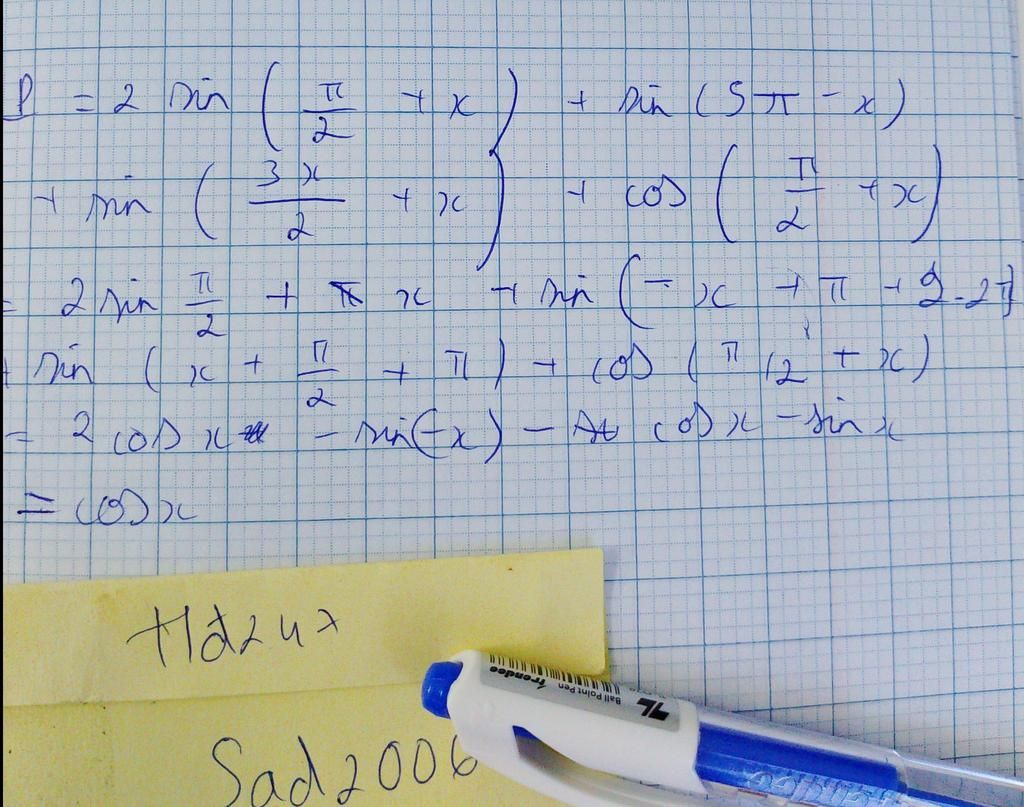 P = 2 sin ( π/2 + x ) + sin (5π - x)
+ sin ( 3x/2 + x ) + cos ( π/2 + x )
= 2 sin π/2 + x + sin ( - x + π + 2.2π)
+ sin ( x + π/2 + π ) + cos ( π/2 + x )
= 2 cos x - sin(-x) - cos x - sin x
= cos x
Hd247
Sad2006
Ball Point Pen Trendee
TL